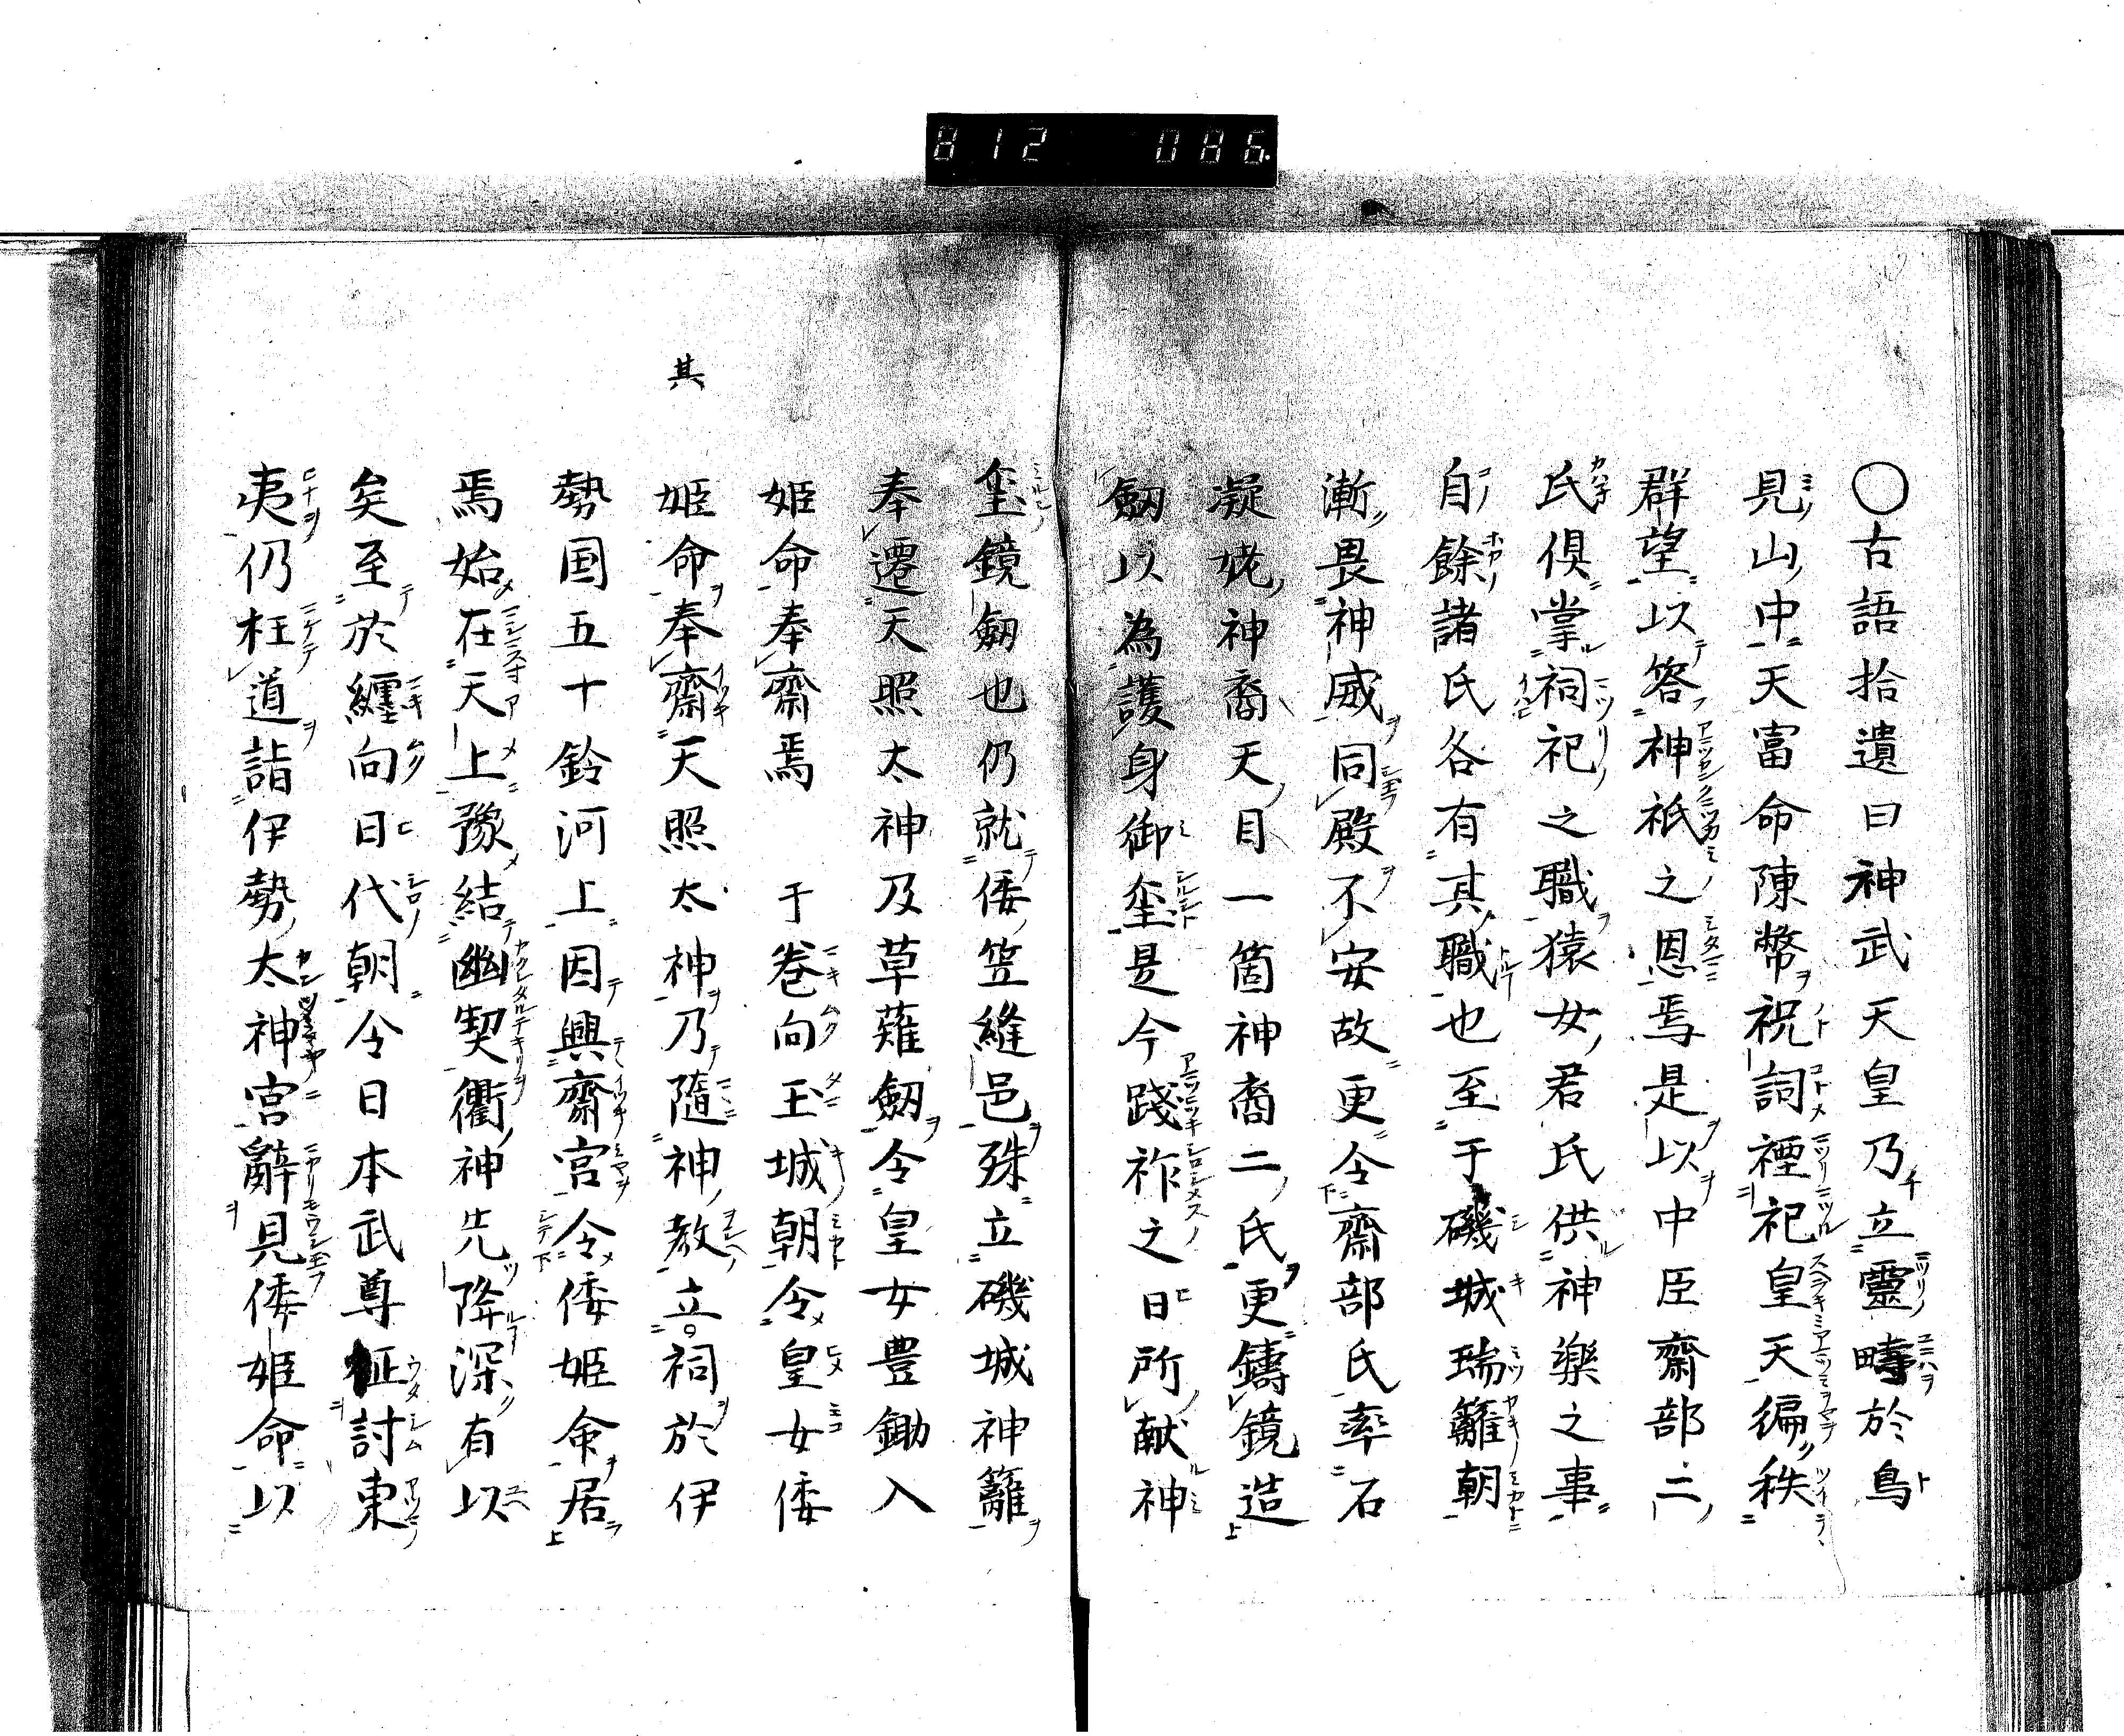 812 086
〇古語拾遺曰神武天皇乃立靈畤於鳥
見山中天富命陳幣祝詞禋祀皇天徧秩
群望以答神祇之恩焉是以中臣齋部二
氏倶掌祠祀之職猿女君氏供神樂之事
自餘諸氏各有其職也至于磯城瑞籬朝
漸畏神威同殿不安故更令齋部氏率石
凝姥神裔天目一箇神裔二氏更鑄鏡造
劔以為護身御璽是今踐祚之日所献神
璽鏡劔也仍就倭笠縫邑殊立磯城神籬
奉遷天照太神及草薙劔令皇女豊鋤入
姫命奉齋焉　于卷向玉城朝令皇女倭
其
姫命奉齋天照太神乃隨神教立祠於伊
勢国五十鈴河上因興齋宮令倭姫命居
焉始在天上豫結幽契衢神先降深有以
矣至於纒向日代朝令日本武尊征討東
夷仍枉道詣伊勢太神宮辭見倭姫命以